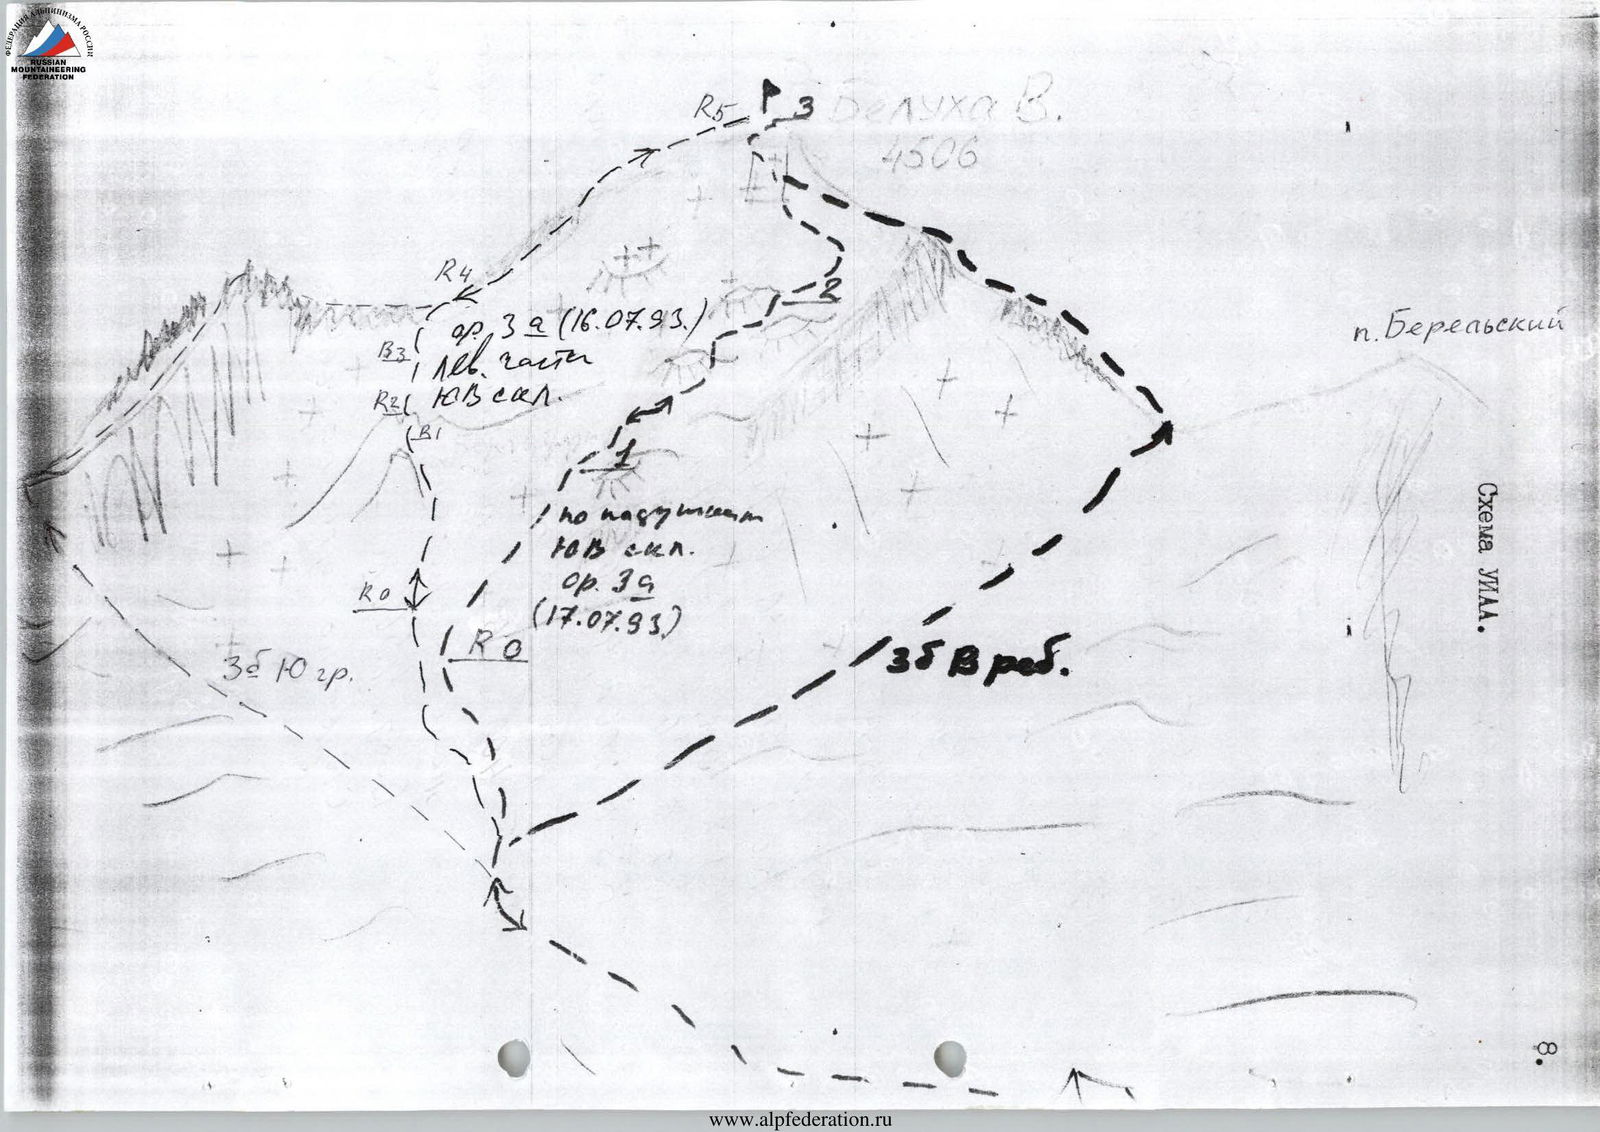 ФЕДЕРАЦИЯ АЛЬПИНИЗМА РОССИИ
RUSSIAN
MOUNTAINEERING
FEDERATION
R5
3
Белуха В.
4506
R4
2
ор. 3а (16.07.93.)
лев. части
ЮВ скл.
R3
R2
R1
п. Берельский
1
по подушкам
ЮВ скл.
ор. 3а
(17.07.93.)
R0
R0
3б Ю гр.
3б В реб.
Схема УИАА.
8.
www.alpfederation.ru